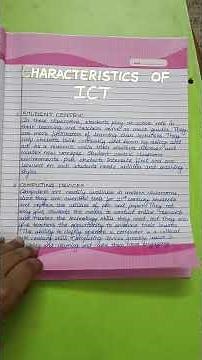 CHARACTERISTICS OF
ICT
STUDENT CENTRIC
In these classrooms, students play an active role in
their learning and teachers serve as mere guides. They
are more facilitators of learning than lecturers. They
help students think critically and learn by doing and
act as a resource while their students discover and
master new concepts. Student centric classroom
environments put students interests first and are
focused on each students needs, abilities and learning
styles.
COMPUTING DEVICES
Computers are readily available in modern classrooms,
since they are essential tools for 21st century students
and replace the utilities of pen and paper. They not
only give students the means to conduct online research
and master the technology skills they need, but they also
give teachers the opportunity to enhance their lessons.
The ability to deftly operate a computer is a critical
21st century skill. Computing devices greatly assist in